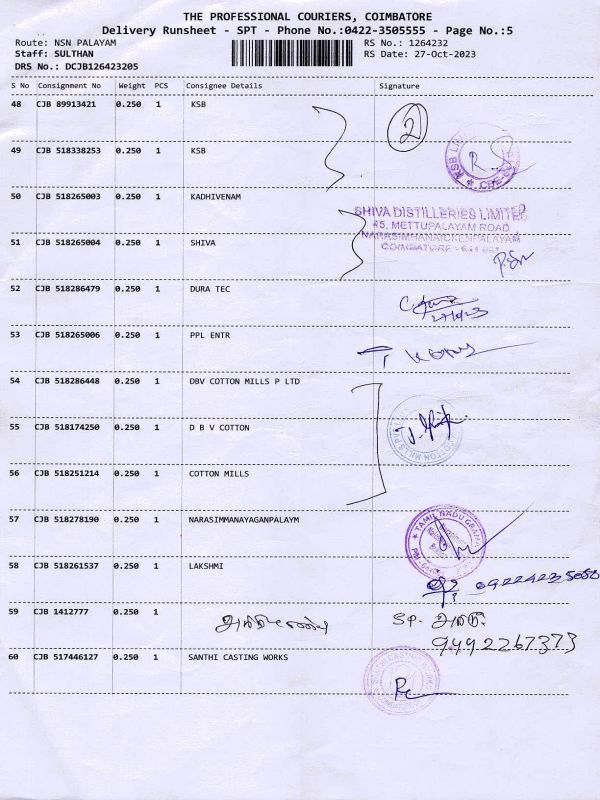 THE PROFESSIONAL COURIERS, COIMBATORE
Delivery Runsheet - SPT - Phone No.:0422-3505555 - Page No.:5
Route: NSN PALAYAM RS No.: 1264232
Staff: SULTHAN RS Date: 27-Oct-2023
DRS No.: DCJB126423205
S No Consignment No Weight PCS Consignee Details Signature
48 CJB 89913421 0.250 1 KSB
2
49 CJB 518338253 0.250 1 KSB
50 CJB 518265003 0.250 1 KADHIVENAM
SHIVA DISTILLERIES LIMITED
45, METTUPALAYAM ROAD
NARASIMHANAICKENPALAYAM
COIMBATORE
51 CJB 518265004 0.250 1 SHIVA
52 CJB 518286479 0.250 1 DURA TEC
53 CJB 518265006 0.250 1 PPL ENTR
54 CJB 518286448 0.250 1 DBV COTTON MILLS P LTD
55 CJB 518174250 0.250 1 D B V COTTON
56 CJB 518251214 0.250 1 COTTON MILLS
57 CJB 518278190 0.250 1 NARASIMMANAYAGANPALAYM
TAMIL NADU GRAMA
58 CJB 518261537 0.250 1 LAKSHMI
59 CJB 1412777 0.250 1
SP.
9492267373
60 CJB 517446127 0.250 1 SANTHI CASTING WORKS